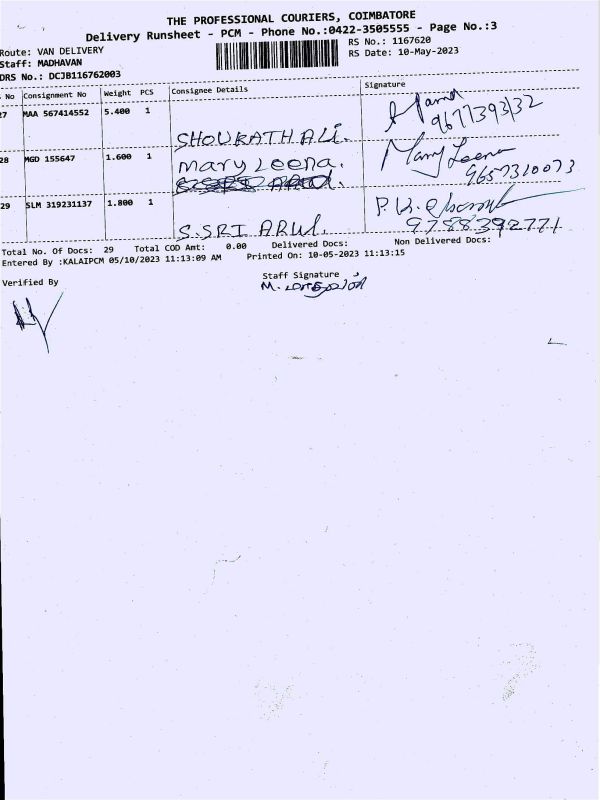 THE PROFESSIONAL COURIERS, COIMBATORE
Delivery Runsheet - PCM - Phone No.:0422-3505555 - Page No.:3
Route: VAN DELIVERY
RS No.: 1167620
Staff: MADHAVAN
RS Date: 10-May-2023
DRS No.: DCJB116762003
No Consignment No Weight PCS Consignee Details Signature
27 MAA 567414552 5.400 1 SHOURATH ALI.
9677393132
28 MGD 155647 1.600 1 Mary Leena. Mary Leena
9657310073
29 SLM 319231137 1.800 1 S.SRI ARUL.
9788392771
Total No. Of Docs: 29 Total COD Amt: 0.00 Delivered Docs: Non Delivered Docs:
Entered By :KALAIPCM 05/10/2023 11:13:09 AM Printed On: 10-05-2023 11:13:15
Staff Signature
Verified By